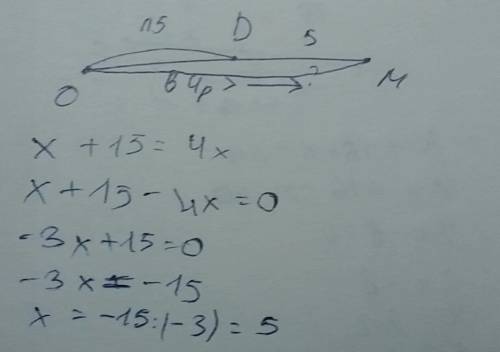 15 D 5
O в 4р > → ? M
x + 15 = 4x
x + 15 - 4x = 0
-3x + 15 = 0
-3x = -15
x = -15:(-3) = 5